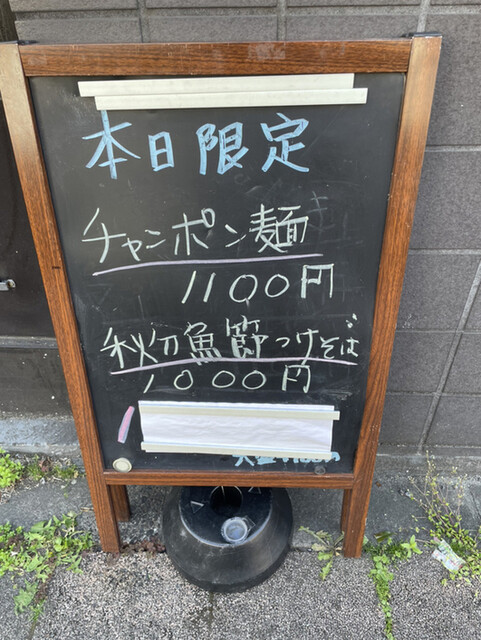 本日限定
チャンポン麺
1100円
秋刀魚節つけそば
1000円